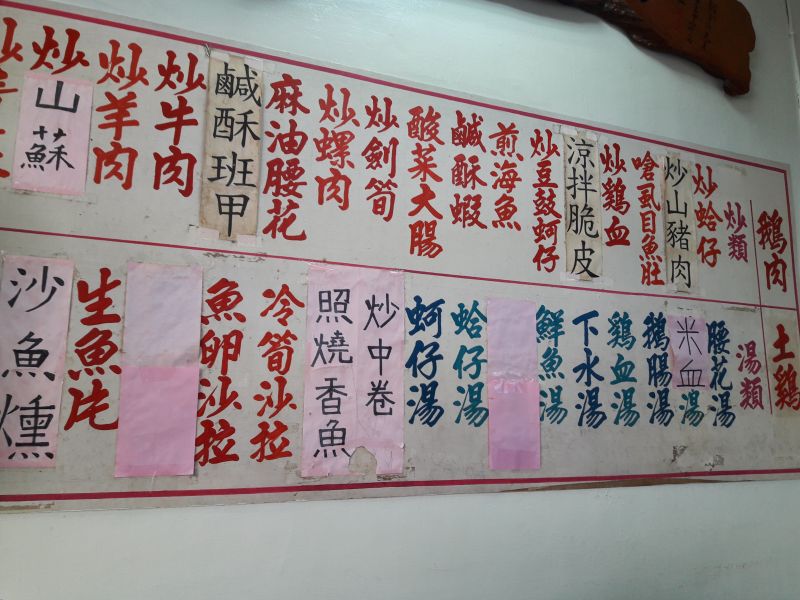 鵝肉
炒類
炒蛤仔
炒山豬肉
嗆虱目魚肚
炒鷄血
涼拌脆皮
炒豆豉蚵仔
煎海魚
鹹酥蝦
酸菜大腸
炒劍筍
炒螺肉
麻油腰花
鹹酥班甲
炒牛肉
炒羊肉
炒山蘇
土鷄
湯類
腰花湯
米血湯
鵝腸湯
鷄血湯
下水湯
鮮魚湯
蛤仔湯
蚵仔湯
炒中卷
照燒香魚
冷筍沙拉
魚卵沙拉
生魚片
沙魚燻